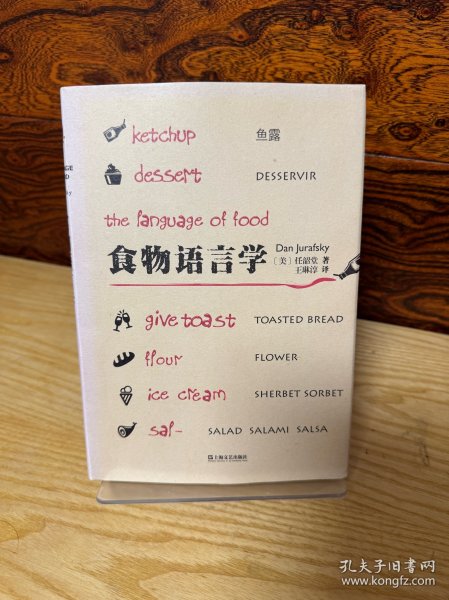 ketchup 鱼露
dessert DESSERVIR
the language of food
食物语言学
Dan Jurafsky
〔美〕任韶堂 著
王琳淳 译
give toast TOASTED BREAD
flour FLOWER
ice cream SHERBET SORBET
sal- SALAD SALAMI SALSA
上海文艺出版社
孔夫子旧书网
www.kongfz.com